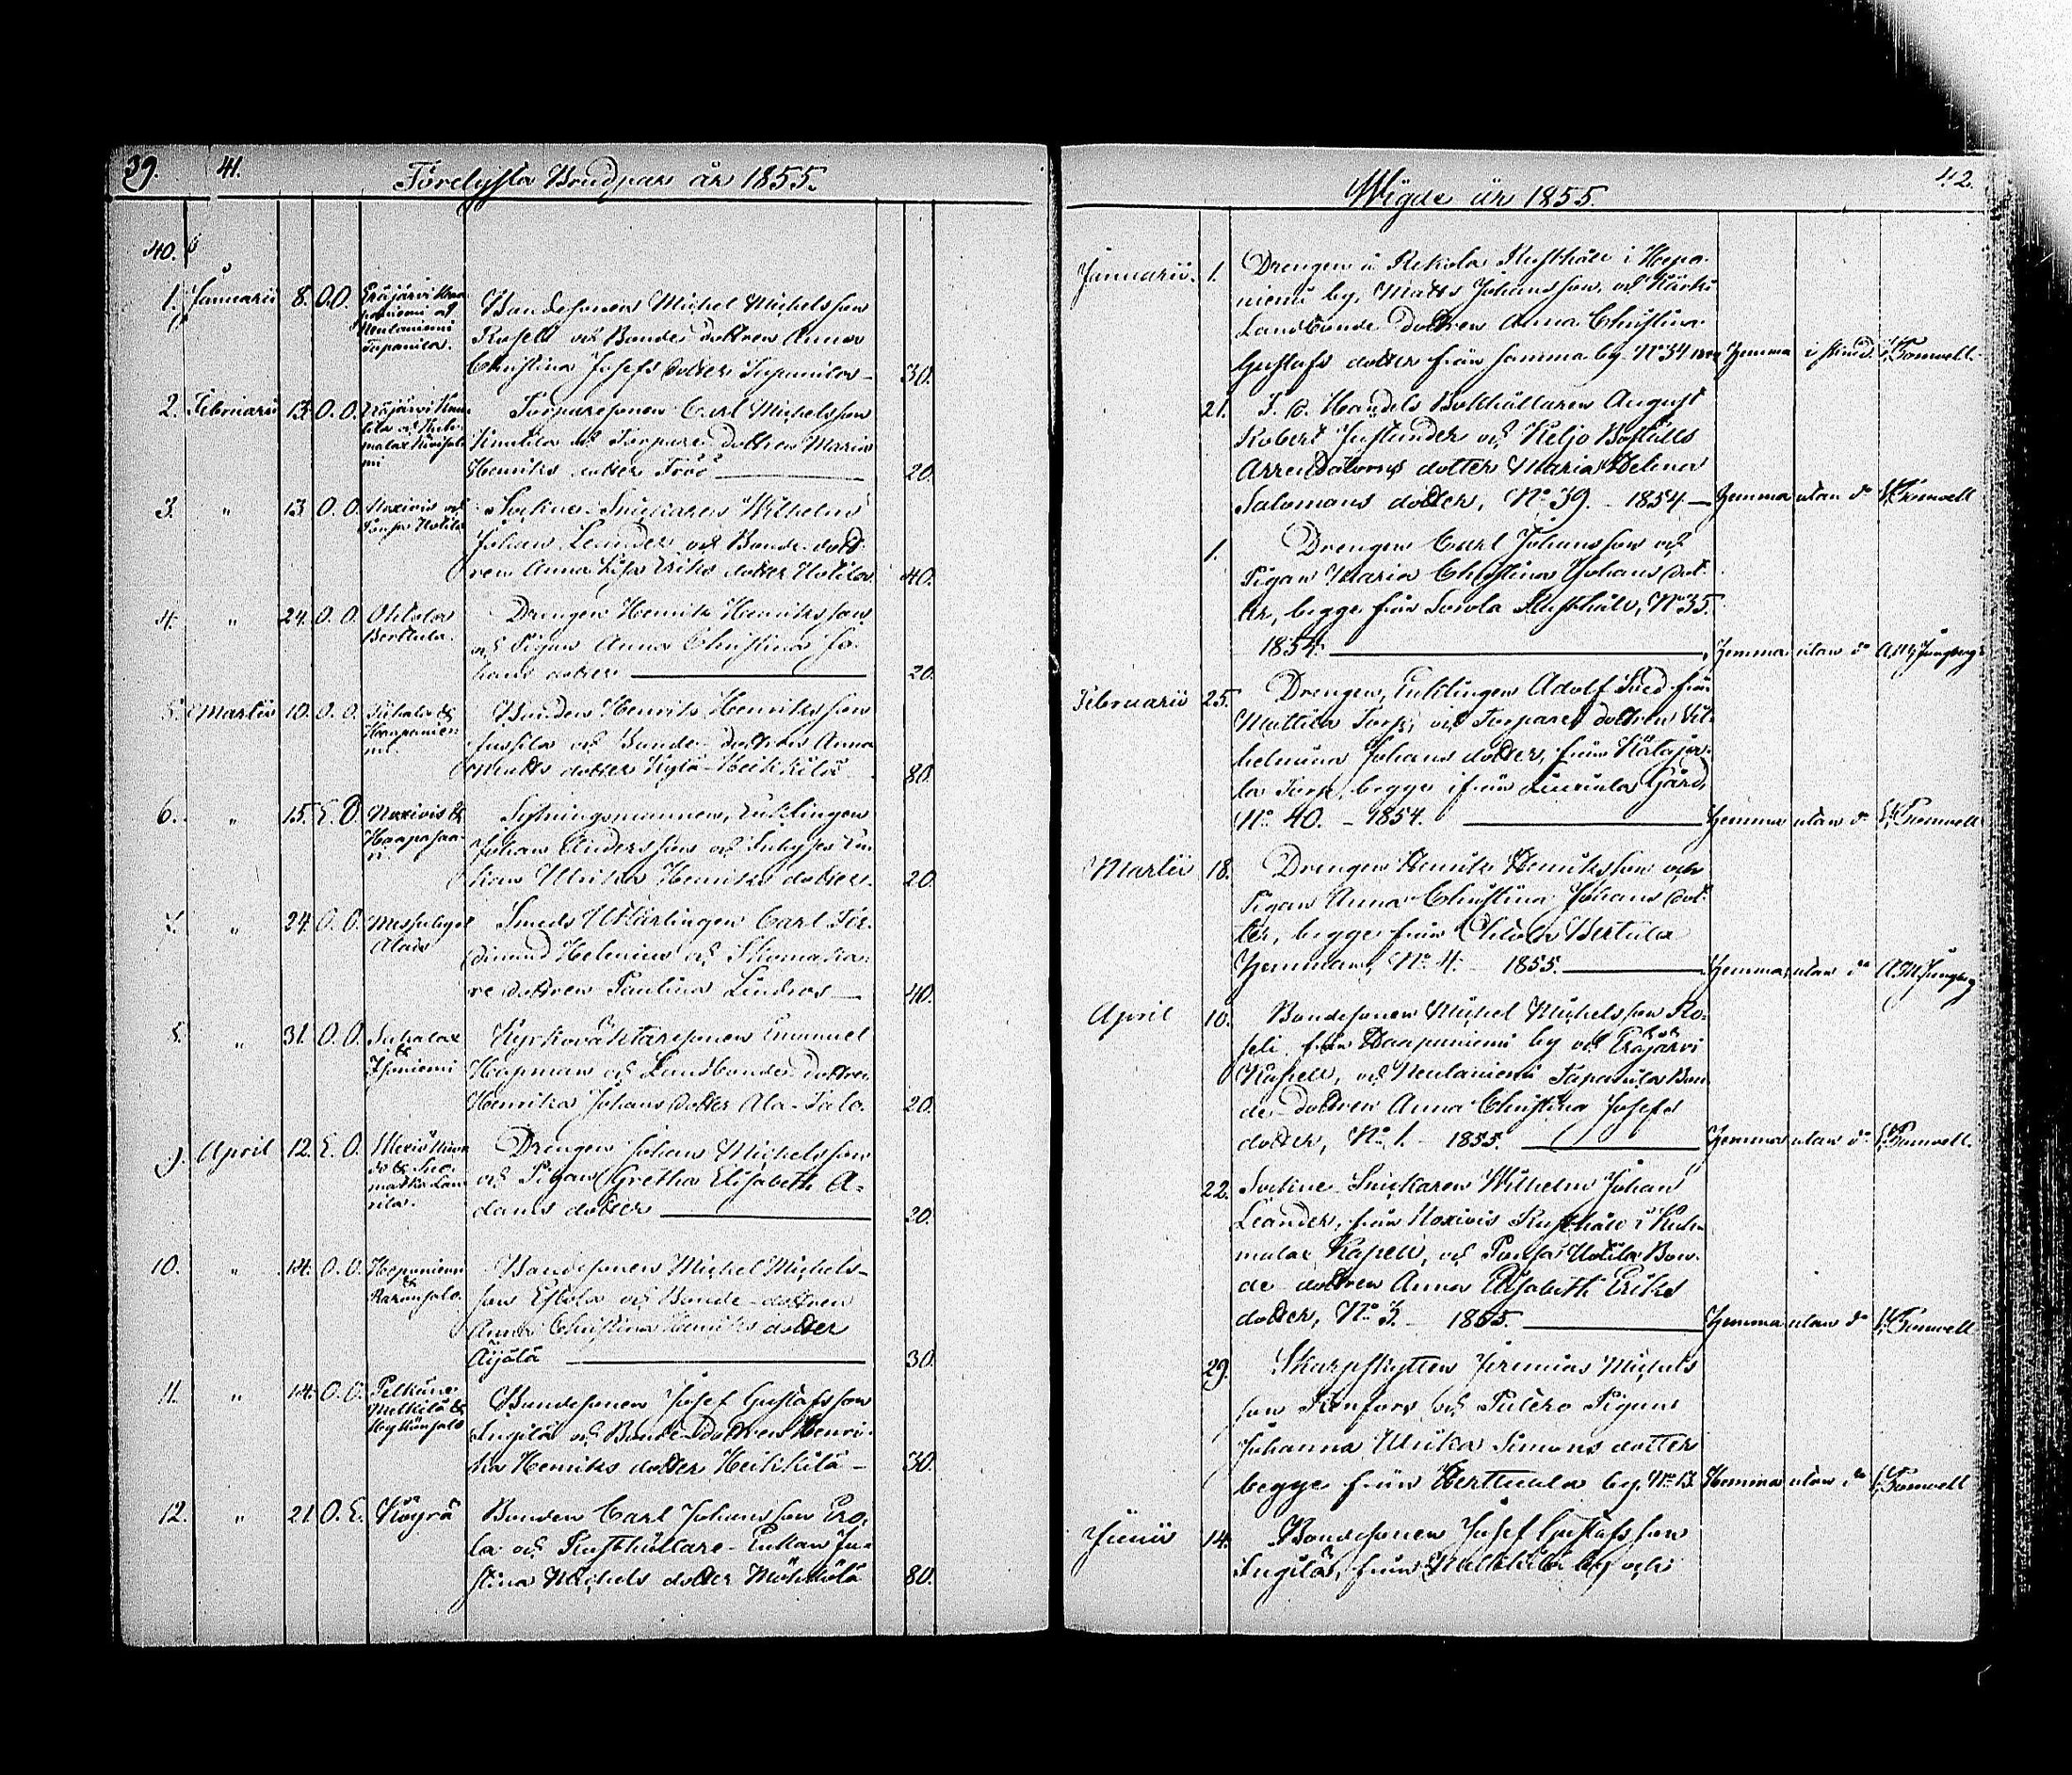 39. 41.
Förelysta Brudpar år 1855.
40.
1. Januarii 8. O. O. Eräjärvi
niemi och
Neulaniemi
Tapanila.
Bondesonen Michel Michelsson
Roseli och Bonde dottren Anna
Christina Josefs dotter Tapanila 30.
2. Februarii 13. O. O. Eräjärvi
Torparesonen Carl Michelsson
Knutila och Torpare dottren Maria
Henriks dotter 20.
3. " 13. O. O. Moxivis och
Sockne Snickaren Wilhelm
Johan Leander och Bonde dott-
ren Anna Lisa Eriks dotter Uotila 40.
4. " 24. O. O. Ohtola
Berttula.
Drengen Henrik Henriksson
och Pigan Anna Christina Jo-
hans dotter 20.
5. Martii 10. O. O. &
Haapanie-
mi.
Bonden Henrik Henriksson
Jussila och Bonde dottren Anna
Matts dotter Kylä-Heikkilä 80.
6. " 15. E. O. Moxivis &
Haapasaa-
ri.
Sytningsmannen, Enklingen
Johan Andersson och Inhyses En-
kan Ulrika Henriks dotter 20.
7. " 24. O. O.
Smeds Carl Fer-
dinand Helenius och Skomaka-
re dottren Paulina Lindros 40.
8. " 31. O. O. Sahalax
&
Isoniemi
Kyrkoväktaresonen Emanuel
Hapman och Landbonde dottren
Henrika Johans dotter Ala-Talo. 20.
9. April 12. E. O.
Drengen Johan Michelsson
och Pigan Gretha Elisabeth A-
dams dotter 20.
10. " 14. O. O. Hopaniemi
&
Bondesonen Michel Michels-
son Eskola och Bonde-dottren
Anna Christina Henriks dotter
Äijälä 30.
11. " 14. O. O. Pelkäne
&
Bondesonen Josef Gustafsson
Ingilä och Bonde-dottren Henri-
ka Henriks dotter Heikkilä 30.
12. " 21. O. E. Köyrä
Bonden Carl Johansson Ero-
la och Rusthållare-Enkan Ju-
stina Michels dotter 80.
42.
Wigde år 1855.
Januarii. 1. Drengen å Rekola Rusthåll i Hepo-
niemi by, Matts Johansson, och Kärki
Landbonde dottren Anna Christina
Gustafs dotter från samma by. N:o 34 Hemma
21. Handels Bokhållaren August
Robert och Keljo Boställs
Arrendators dotter Maria Helena
Salomons dotter, N:o 39. – 1854 – Hemma utan d:o
1. Drengen Carl Johansson och
Pigan Maria Christina Johans dot-
ter, begge från Rusthåll, N:o 35.
1854. Hemma utan d:o
Februarii 25. Drengen, Enklingen Adolf från
Mattila Torp, och Torpare dottren Vil-
helmina Johans dotter, från
la Torp, begge ifrån Gård,
N:o 40. – 1854. Hemma utan d:o
Martii 18. Drengen Henrik Henriksson och
Pigan Anna Christina Johans dot-
ter, begge från Ohtola Bertula
Hemman, N:o 4. 1855. Hemma utan d:o
April 10. Bondesonen Michel Michelsson Ro-
seli från Haapaniemi by och Eräjärvi
Kapell, och Neulaniemi Tapanila Bon-
de-dottren Anna Christina Josefs
dotter, N:o 1. – 1855. Hemma utan d:o
22. Sockne-Snickaren Wilhelm Johan
Leander, från Moxivis Rusthåll i Kuh-
malax Kapell, och Uotila Bon-
de dottren Anna Elisabeth Eriks
dotter, N:o 3. – 1855. Hemma utan d:o
29. Skarpskytten Jeremias Michels
son och Pigan
Johanna Ulrika Simons dotter
begge från Berttula by, N:o 13. Hemma utan d:o
Junii 14. Bondesonen Josef Gustafsson
Ingilä, från by och